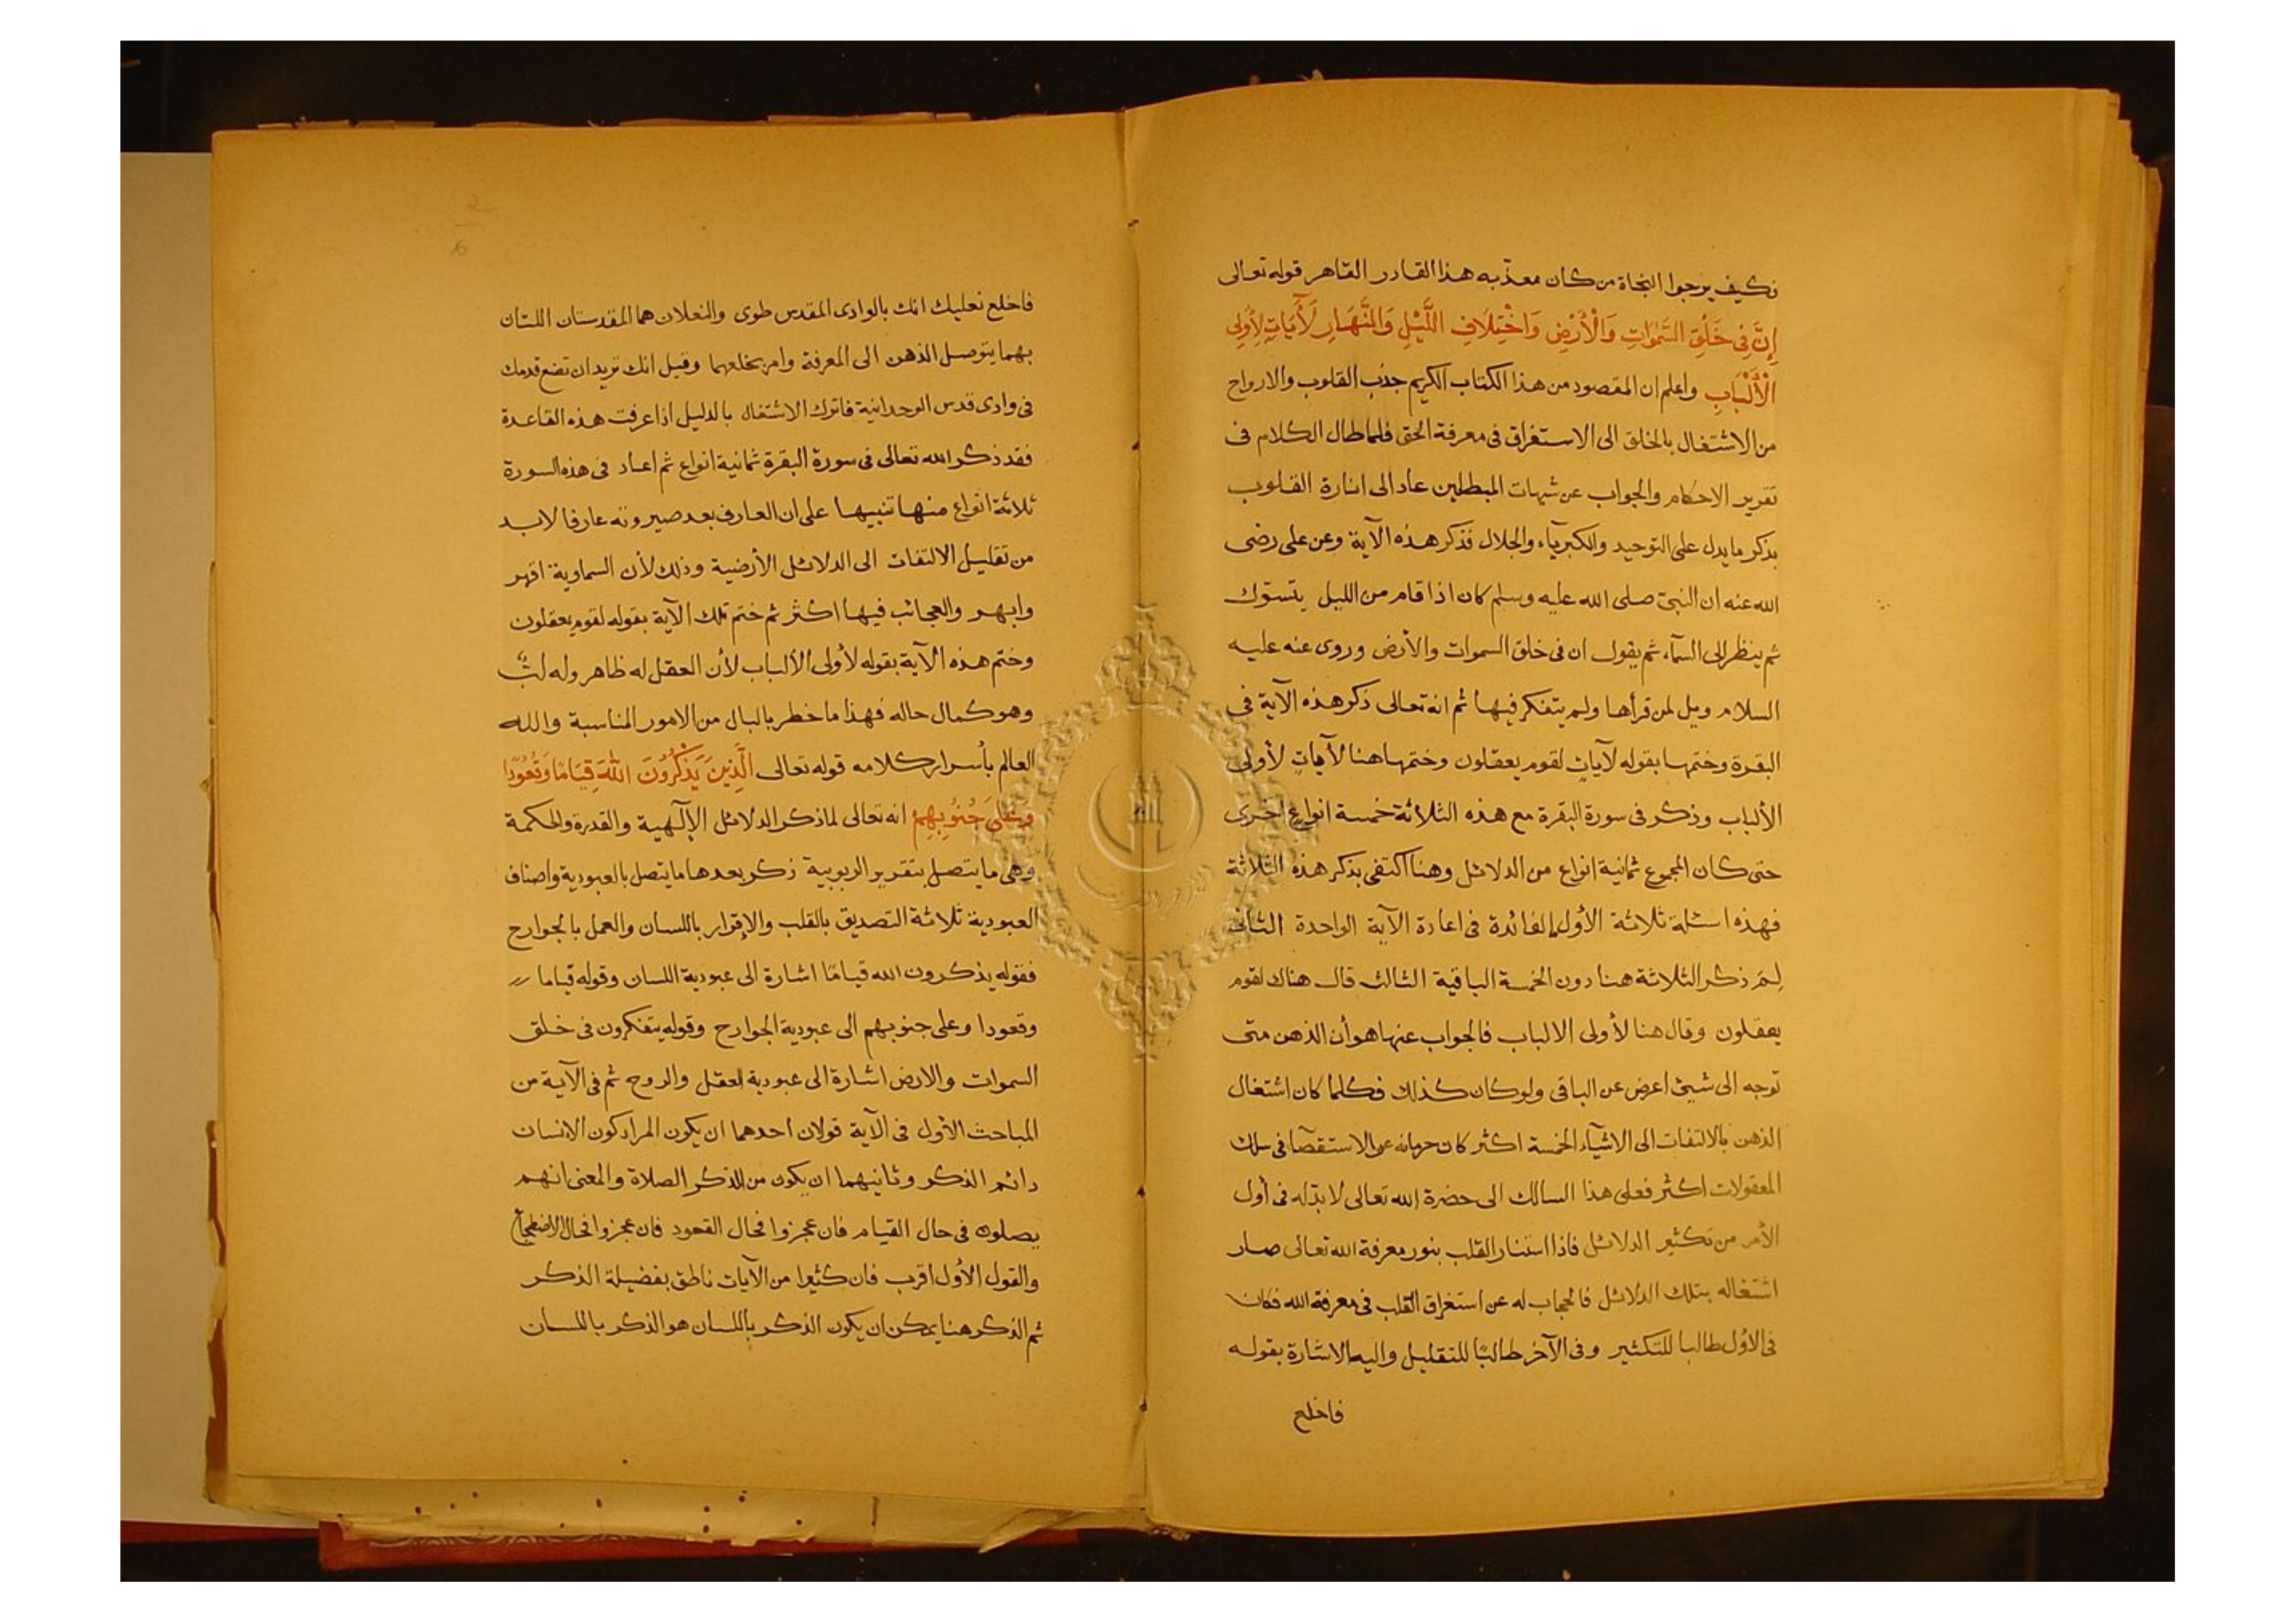 فكيف يرجوا النجاة من كان معذّبه هذا القادر القاهر قوله تعالى
إِنَّ فِى خَلْقِ السَّمٰوَاتِ وَالْأَرْضِ وَاخْتِلَافِ اللَّيْلِ وَالنَّهَارِ لَأٓيَاتٍ لِأُولِى
الْأَلْبَابِ واعلم ان المقصود من هذا الكتاب الكريم جذب القلوب والارواح
من الاشتغال بالخلق الى الاستغراق فى معرفة الحق فلما طال الكلام فى
تقرير الاحكام والجواب عن شبهات المبطلين عاد الى انارة القلوب
بذكر ما يدل على التوحيد والكبريآء والجلال فذكر هذه الآية وعن على رضى
الله عنه ان النبىّ صلى الله عليه وسلم كان اذا قام من الليل يتسوّك
ثم ينظر الى السمآء ثم يقول ان فى خلق السموات والأرض وروى عنه عليه
السلام ويل لمن قرأها ولم يتفكر فيها ثم انه تعالى ذكر هذه الآية فى
البقرة وختمها بقوله لآياتٍ لقوم يعقلون وختمها هنا لأٓياتٍ لأولى
الألباب وذكر فى سورة البقرة مع هذه الثلاثة خمسة انواع اخرى
حتى كان المجموع ثمانية انواع من الدلائل وهنا اكتفى بذكر هذه الثلاثة
فهذه اسئلة ثلاثة الأول ما الفائدة فى اعادة الآية الواحدة الثانى
لِمَ ذكر الثلاثة هنا دون الخمسة الباقية الثالث قال هناك لقوم
يعقلون وقال هنا لأولى الالباب فالجواب عنها هو أن الذهن متى
توجه الى شيئ اعرض عن الباقى ولو كان كذلك فكلما كان اشتغال
الذهن بالالتفات الى الاشيآء الخمسة اكثر كان حرمانه عن الاستقصآ فى سلك
المعقولات اكثر فعلى هذا السالك الى حضرة الله تعالى لا بدّ له فى أول
الأمر من تكثير الدلائل فاذا استنار القلب بنور معرفة الله تعالى صار
اشتغاله بتلك الدلائل كالحجاب له عن استغراق القلب فى معرفة الله فكان
فى الاوّل طالبا للتكثير وفى الآخر طالبًا للتقليل واليه الاشارة بقوله
فاخلع
فاخلع نعليك انك بالوادى المقدس طوى والنعلان هما المقدستان اللتان
بهما يتوصل الذهن الى المعرفة وامر بخلعهما وقيل انك تريد ان تضع قدمك
فى وادى قدس الوحدانية فاترك الاشتغال بالدليل اذا عرفت هذه القاعدة
فقد ذكر الله تعالى فى سورة البقرة ثمانية انواع ثم اعاد فى هذه السورة
ثلاثة انواع منها تنبيها على ان العارف بعد صيرورته عارفا لا بد
من تقليل الالتفات الى الدلائل الأرضية وذلك لأن السماوية اقهر
وابهر والعجائب فيها اكثر ثم ختم تلك الآية بقوله لقوم يعقلون
وختم هذه الآية بقوله لأولى الألباب لأن العقل له ظاهر وله لبّ
وهو كمال حاله فهذا ما خطر بالبال من الامور المناسبة والله
العالم بأسرار كلامه قوله تعالى الَّذِينَ يَذْكُرُونَ اللهَ قِيَامًا وَقُعُودًا
وَعَلَى جُنُوبِهِمْ انه تعالى لما ذكر الدلائل الإلٓهية والقدرة والحكمة
وهى ما يتصل بتقرير الربوبية ذكر بعدها ما يتصل بالعبودية واصناف
العبودية ثلاثة التصديق بالقلب والإقرار باللسان والعمل بالجوارح
فقوله يذكرون الله قيامًا اشارة الى عبودية اللسان وقوله قياما
وقعودا وعلى جنوبهم الى عبودية الجوارح وقوله يتفكرون فى خلق
السموات والارض اشارة الى عبودية العقل والروح ثم فى الآية من
المباحث الأول فى الآية قولان احدهما ان يكون المراد كون الانسان
دائم الذكر وثانيهما ان يكون من الذكر الصلاة والمعنى انهم
يصلون فى حال القيام فان عجزوا فحال القعود فان عجزوا فحال الاضطجاع
والقول الأول اقرب فان كثيرا من الآيات ناطق بفضيلة الذكر
ثم الذكر هنا يمكن ان يكون الذكر باللسان هو الذكر باللسان